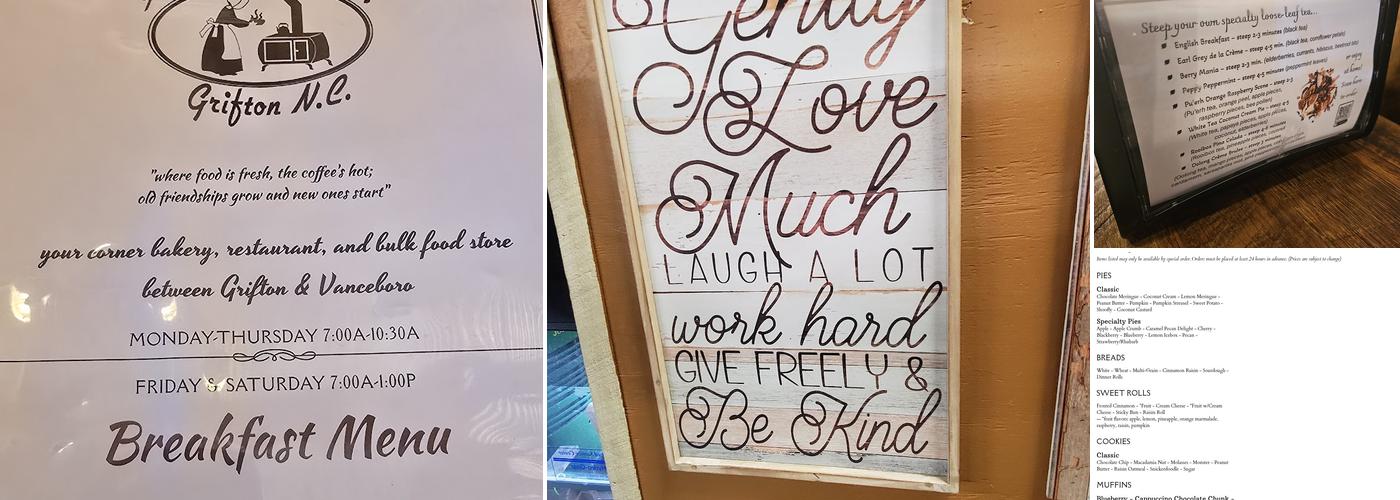 Grifton N.C.
"where food is fresh, the coffee's hot;
old friendships grow and new ones start"
your corner bakery, restaurant, and bulk food store
between Grifton & Vanceboro
MONDAY-THURSDAY 7:00A-10:30A
FRIDAY & SATURDAY 7:00A-1:00P
Breakfast Menu
Gently
Love
Much
LAUGH A LOT
work hard
GIVE FREELY &
Be Kind
Steep your own specialty loose-leaf tea...
English Breakfast – steep 2-3 minutes (black tea)
Earl Grey de la Crème – steep 4-5 min. (black tea, cornflower petals)
Berry Mania – steep 2-3 min. (elderberries, currants, hibiscus, beetroot bits)
Peppy Peppermint – steep 4-5 minutes (peppermint leaves)
Pu'erh Orange Raspberry Scone – steep 2-3
(Pu'erh tea, orange peel, apple pieces,
raspberry pieces, bee pollen)
White Tea Coconut Cream Pie – steep 4-5
(White tea, papaya pieces, apple pieces,
coconut, elderberries)
Rooibos Pina Colada – steep 4-6 minutes
(Rooibos tea, pineapple pieces, coconut
Oolong Crème Brulee – steep 3 minutes
(Oolong tea, mango pieces, apple pieces,
Items listed may only be available by special order. Orders must be placed at least 24 hours in advance. (Prices are subject to change)
PIES
Classic
Chocolate Meringue - Coconut Cream - Lemon Meringue -
Peanut Butter - Pumpkin - Pumpkin Streusel - Sweet Potato -
Shoofly - Coconut Custard
Specialty Pies
Apple - Apple Crumb - Caramel Pecan Delight - Cherry -
Blackberry - Blueberry - Lemon Icebox - Pecan -
Strawberry/Rhubarb
BREADS
White - Wheat - Multi-Grain - Cinnamon Raisin - Sourdough -
Dinner Rolls
SWEET ROLLS
Frosted Cinnamon - *Fruit - Cream Cheese - *Fruit w/Cream
Cheese - Sticky Bun - Raisin Roll
— *fruit flavors: apple, lemon, pineapple, orange marmalade,
raspberry, raisin, pumpkin
COOKIES
Classic
Chocolate Chip - Macadamia Nut - Molasses - Monster - Peanut
Butter - Raisin Oatmeal - Snickerdoodle - Sugar
MUFFINS
Blueberry - Cappuccino Chocolate Chunk -